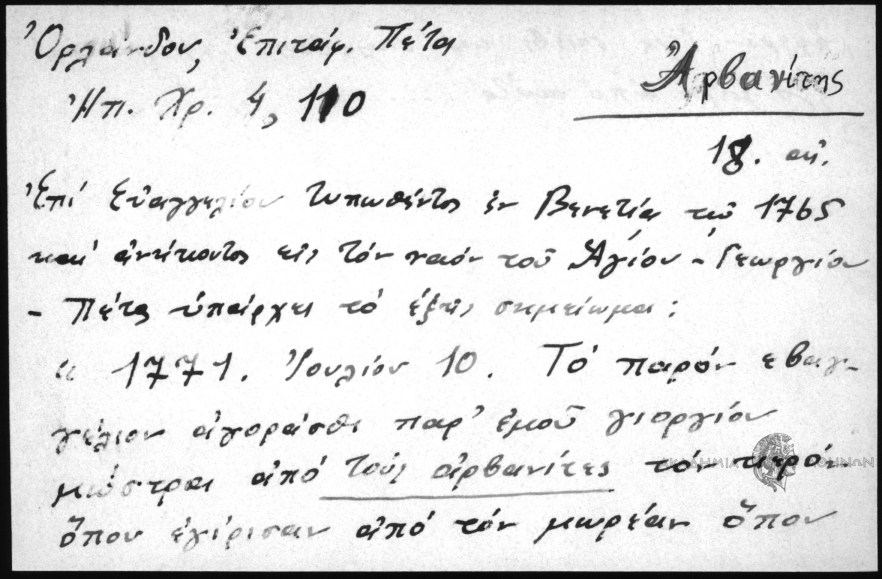 Ὀρλάνδου, Ἐπιταφ. Πέτα
Ἠπ. Χρ. 4, 110
Ἀρβανίτης
18. αἰ.
Ἐπί Εὐαγγελίου τυπωθέντος ἐν Βενετίᾳ τῷ 1765
καί ἀνήκοντος εἰς τόν ναόν τοῦ Ἁγίου - Γεωργίου
- Πέτα ὑπάρχει τό ἑξῆς σημείωμα:
« 1771. Ἰουλίου 10. Τό παρόν εβαγ-
γέλιον ἀγοράσθι παρ' ἐμοῦ γιοργίου
μόστρα ἀπό τούς ἀρβανίτες τόν κερόν
ὅπου ἐγίρισαν ἀπό τόν μωρέαν ὅπου
ΑΚΑΔΗΜΙΑ ΑΘΗΝΩΝ